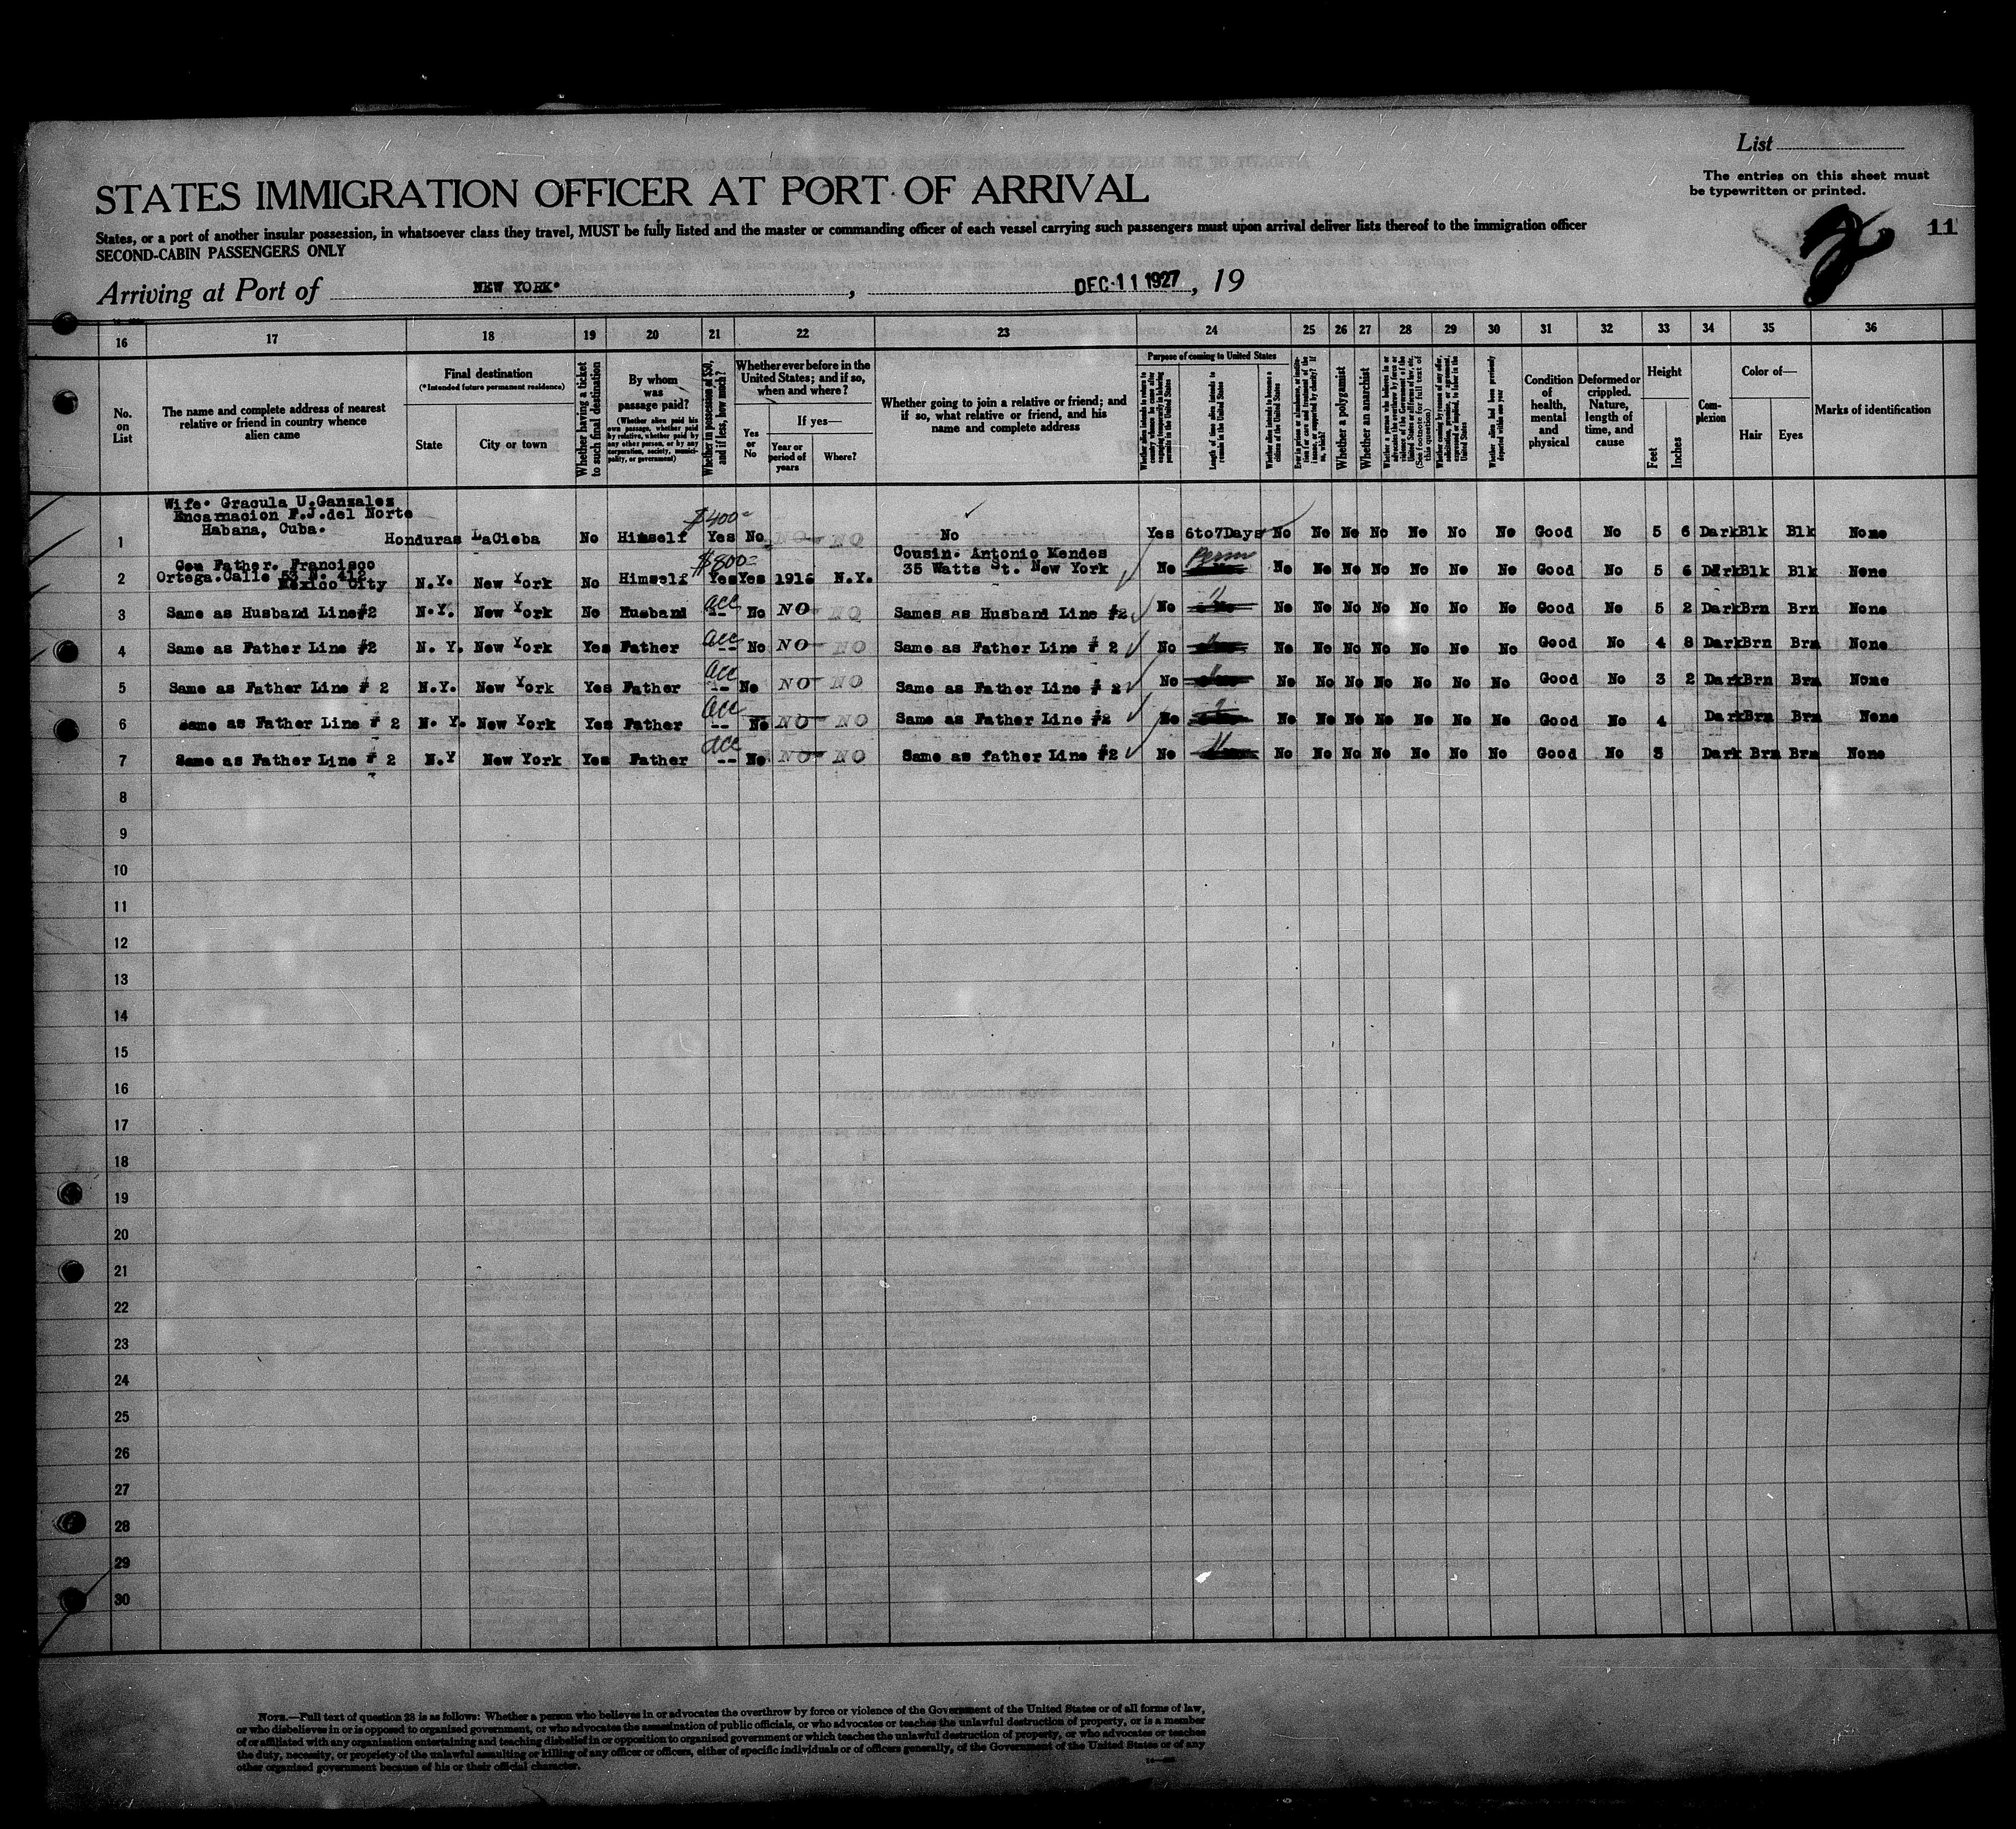 List
The entries on this sheet must
be typewritten or printed.
STATES IMMIGRATION OFFICER AT PORT OF ARRIVAL
11
States, or a port of another insular possession, in whatsoever class they travel, MUST be fully listed and the master or commanding officer of each vessel carrying such passengers must upon arrival deliver lists thereof to the immigration officer
SECOND-CABIN PASSENGERS ONLY
Arriving at Port of NEW YORK. , DEC 11 1927, 19
16 17 18 19 20 21 22 23 24 25 26 27 28 29 30 31 32 33 34 35 36
No. on List
The name and complete address of nearest relative or friend in country whence alien came
Final destination
(*Intended future permanent residence)
State
City or town
Whether having a ticket to such final destination
By whom was passage paid?
(Whether alien paid his own passage, whether paid by relative, whether paid by any other person, or by any corporation, society, municipality, or government)
Whether in possession of $50, and if less, how much?
Whether ever before in the United States; and if so, when and where?
Yes or No
If yes—
Year or period of years
Where?
Whether going to join a relative or friend; and if so, what relative or friend, and his name and complete address
Purpose of coming to United States
Whether alien intends to return to country whence he came after engaging temporarily in laboring pursuits in the United States
Length of time alien intends to remain in the United States
Whether alien intends to become a citizen of the United States
Whether a polygamist
Whether an anarchist
Condition of health, mental and physical
Deformed or crippled. Nature, length of time, and cause
Height
Feet
Inches
Complexion
Color of—
Hair
Eyes
Marks of identification
Wife. Gracula U.Ganzales
Encarnacion F.J.del Norte
Habana, Cuba.
$400-
1 Honduras LaCieba No Himself Yes No NO NO No Yes 6to7Days No No No No No No No Good No 5 6 Dark Blk Blk None
Father. Francisco
Ortega.Calle 53 N. 412
Mexico City
$800-
Cousin. Antonio Mendes
35 Watts St. New York
Perm
2 N.Y. New York No Himself Yes Yes 1916 N.Y. No No No No No No No No Good No 5 6 Dark Blk Blk None
3 Same as Husband Line#2 N.Y. New York No Husband acc -- No NO NO Sames as Husband Line #2 No " No No No No No No No Good No 5 2 Dark Brn Brn None
4 Same as Father Line #2 N. Y. New York Yes Father acc -- No NO NO Same as Father Line # 2 No " No No No No No No No Good No 4 8 Dark Brn Brn None
5 Same as Father Line # 2 N.Y. New York Yes Father acc -- No NO NO Same as Father Line # 2 No " No No No No No No No Good No 3 2 Dark Brn Brn None
6 Same as Father Line # 2 N. Y. New York Yes Father acc -- No NO NO Same as Father Line #2 No " No No No No No No No Good No 4 Dark Brn Brn None
7 Same as Father Line # 2 N.Y New York Yes Father acc -- No NO NO Same as father Line #2 No " No No No No No No No Good No 3 Dark Brn Brn None
8
9
10
11
12
13
14
15
16
17
18
19
20
21
22
23
24
25
26
27
28
29
30
NOTE.—Full text of question 28 is as follows: Whether a person who believes in or advocates the overthrow by force or violence of the Government of the United States or of all forms of law,
or who disbelieves in or is opposed to organized government, or who advocates the assassination of public officials, or who advocates or teaches the unlawful destruction of property, or is a member
of or affiliated with any organization entertaining and teaching disbelief in or opposition to organized government or which teaches the unlawful destruction of property, or who advocates or teaches
the duty, necessity, or propriety of the unlawful assaulting or killing of any officer or officers, either of specific individuals or of officers generally, of the Government of the United States or of any
other organized government because of his or their official character.